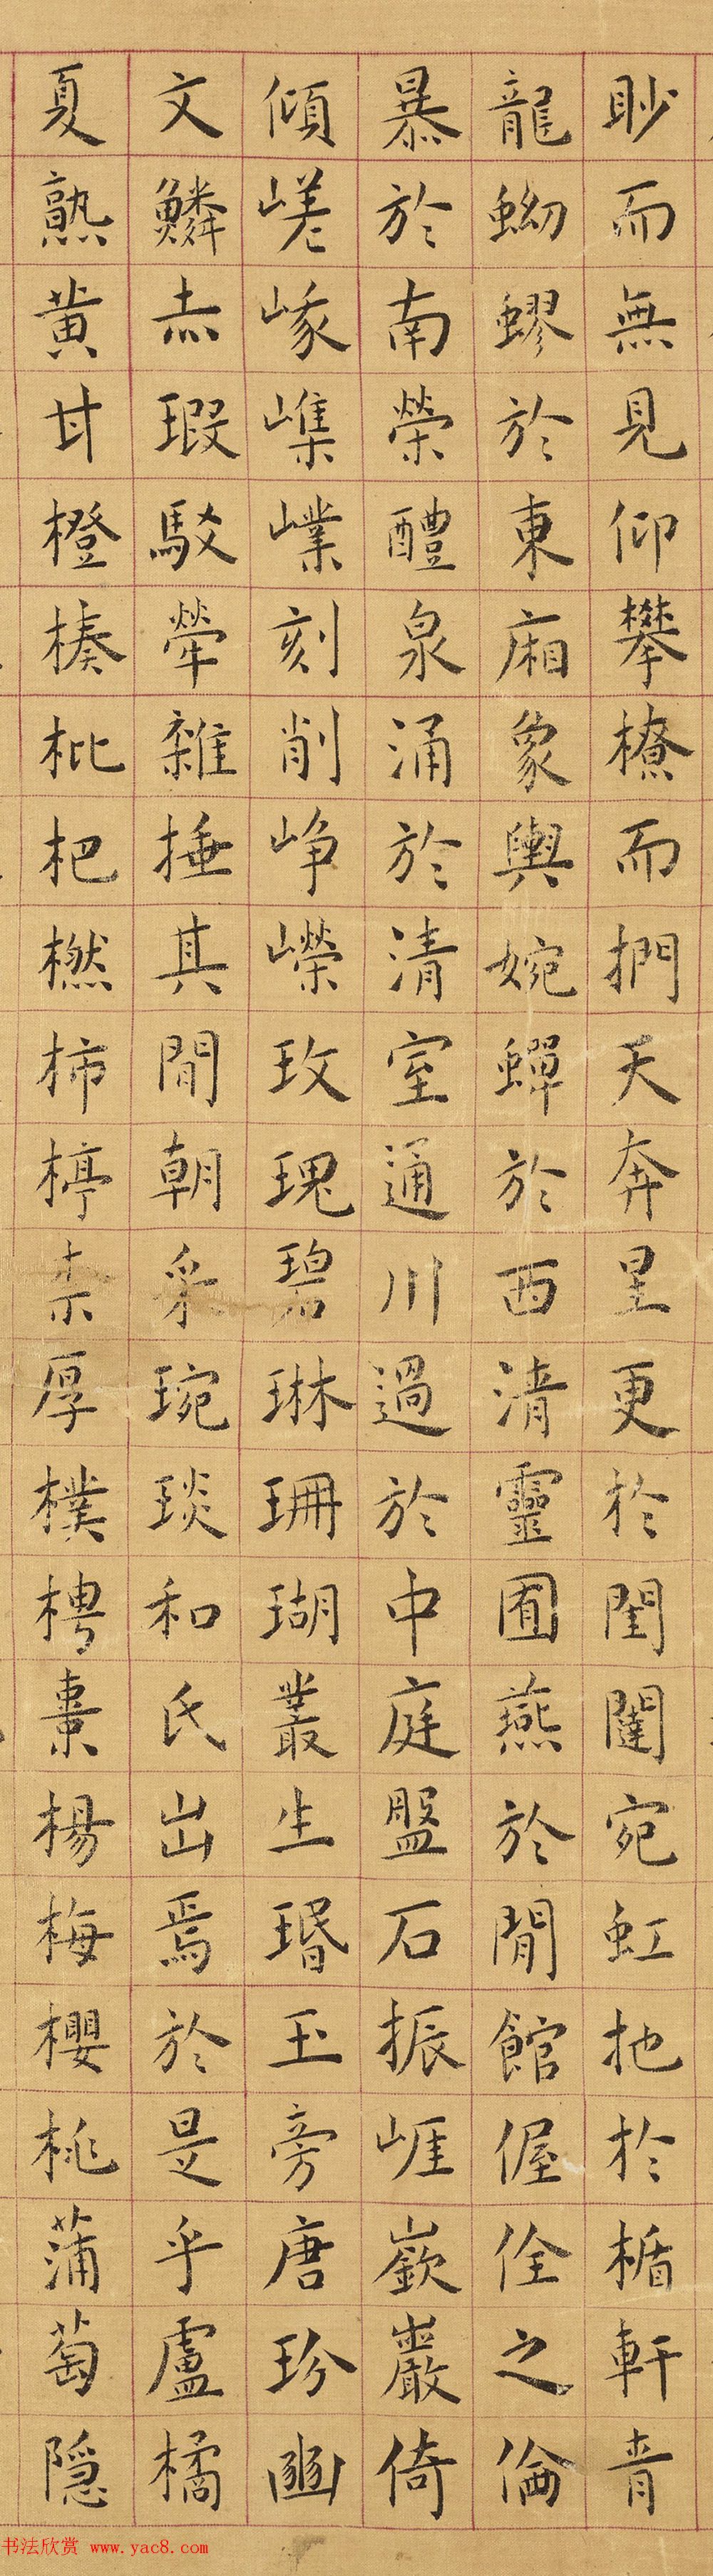 眇而無見仰攀橑而捫天奔星更於閨闥宛虹扡於楯軒青
龍蚴蟉於東廂象輿婉蟬於西清靈囿燕於閒館偓佺之倫
暴於南榮醴泉涌於清室通川過於中庭盤石振崕嶔巖倚
傾嵯峨㠍嶪刻削崢嶸玫瑰碧琳珊瑚叢生瑉玉旁唐玢豳
文鱗赤瑕駁犖雜捶其間朝采琬琰和氏出焉於是乎盧橘
夏熟黃甘橙楱枇杷橪柿楟柰厚樸梬棗楊梅櫻桃蒲萄隱
书法欣赏 www.yac8.com